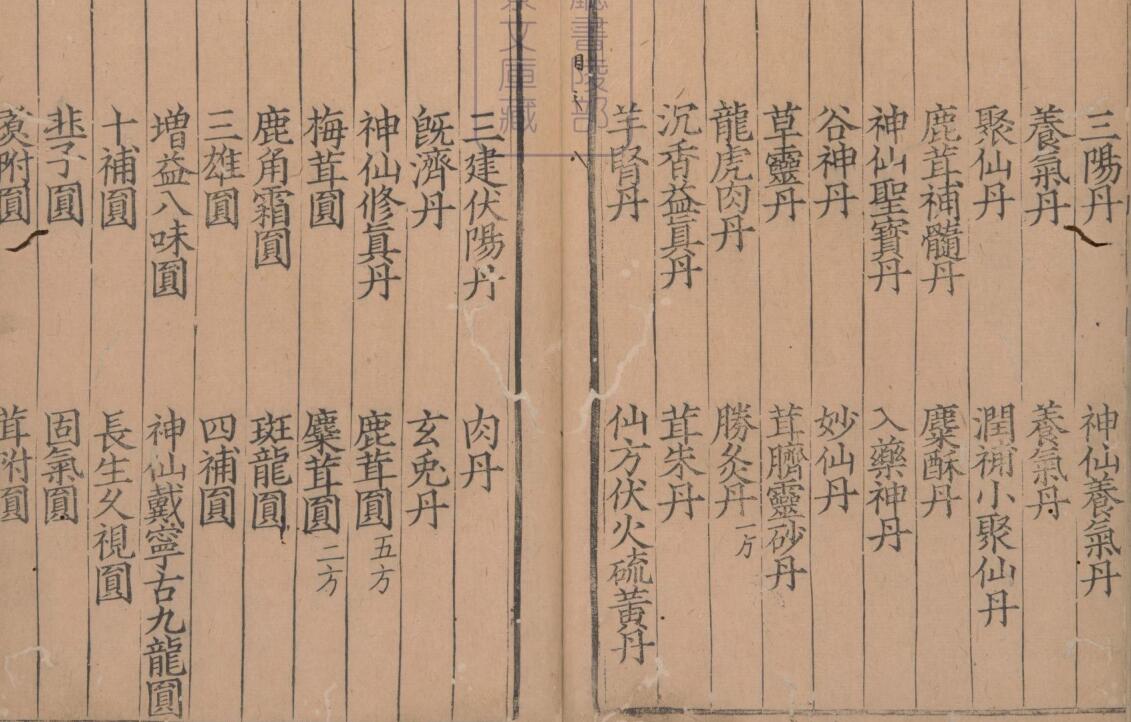 三陽丹 神仙養氣丹
養氣丹 養氣丹
聚仙丹 潤補小聚仙丹
鹿茸補髓丹 麋酥丹
神仙聖寶丹 入藥神丹
谷神丹 妙仙丹
草靈丹 茸臍靈砂丹
龍虎肉丹 勝灸丹 一方
沉香益眞丹 茸朱丹
羊腎丹 仙方伏火硫黃丹
書陵部
文庫藏
三建伏陽丹 肉丹
旣濟丹 玄兔丹
神仙修眞丹 鹿茸圓 五方
梅茸圓 麋茸圓 二方
鹿角霜圓 斑龍圓
三雄圓 四補圓
增益八味圓 神仙戴寧古九龍圓
十補圓 長生久視圓
韭子圓 固氣圓
附圓 茸附圓